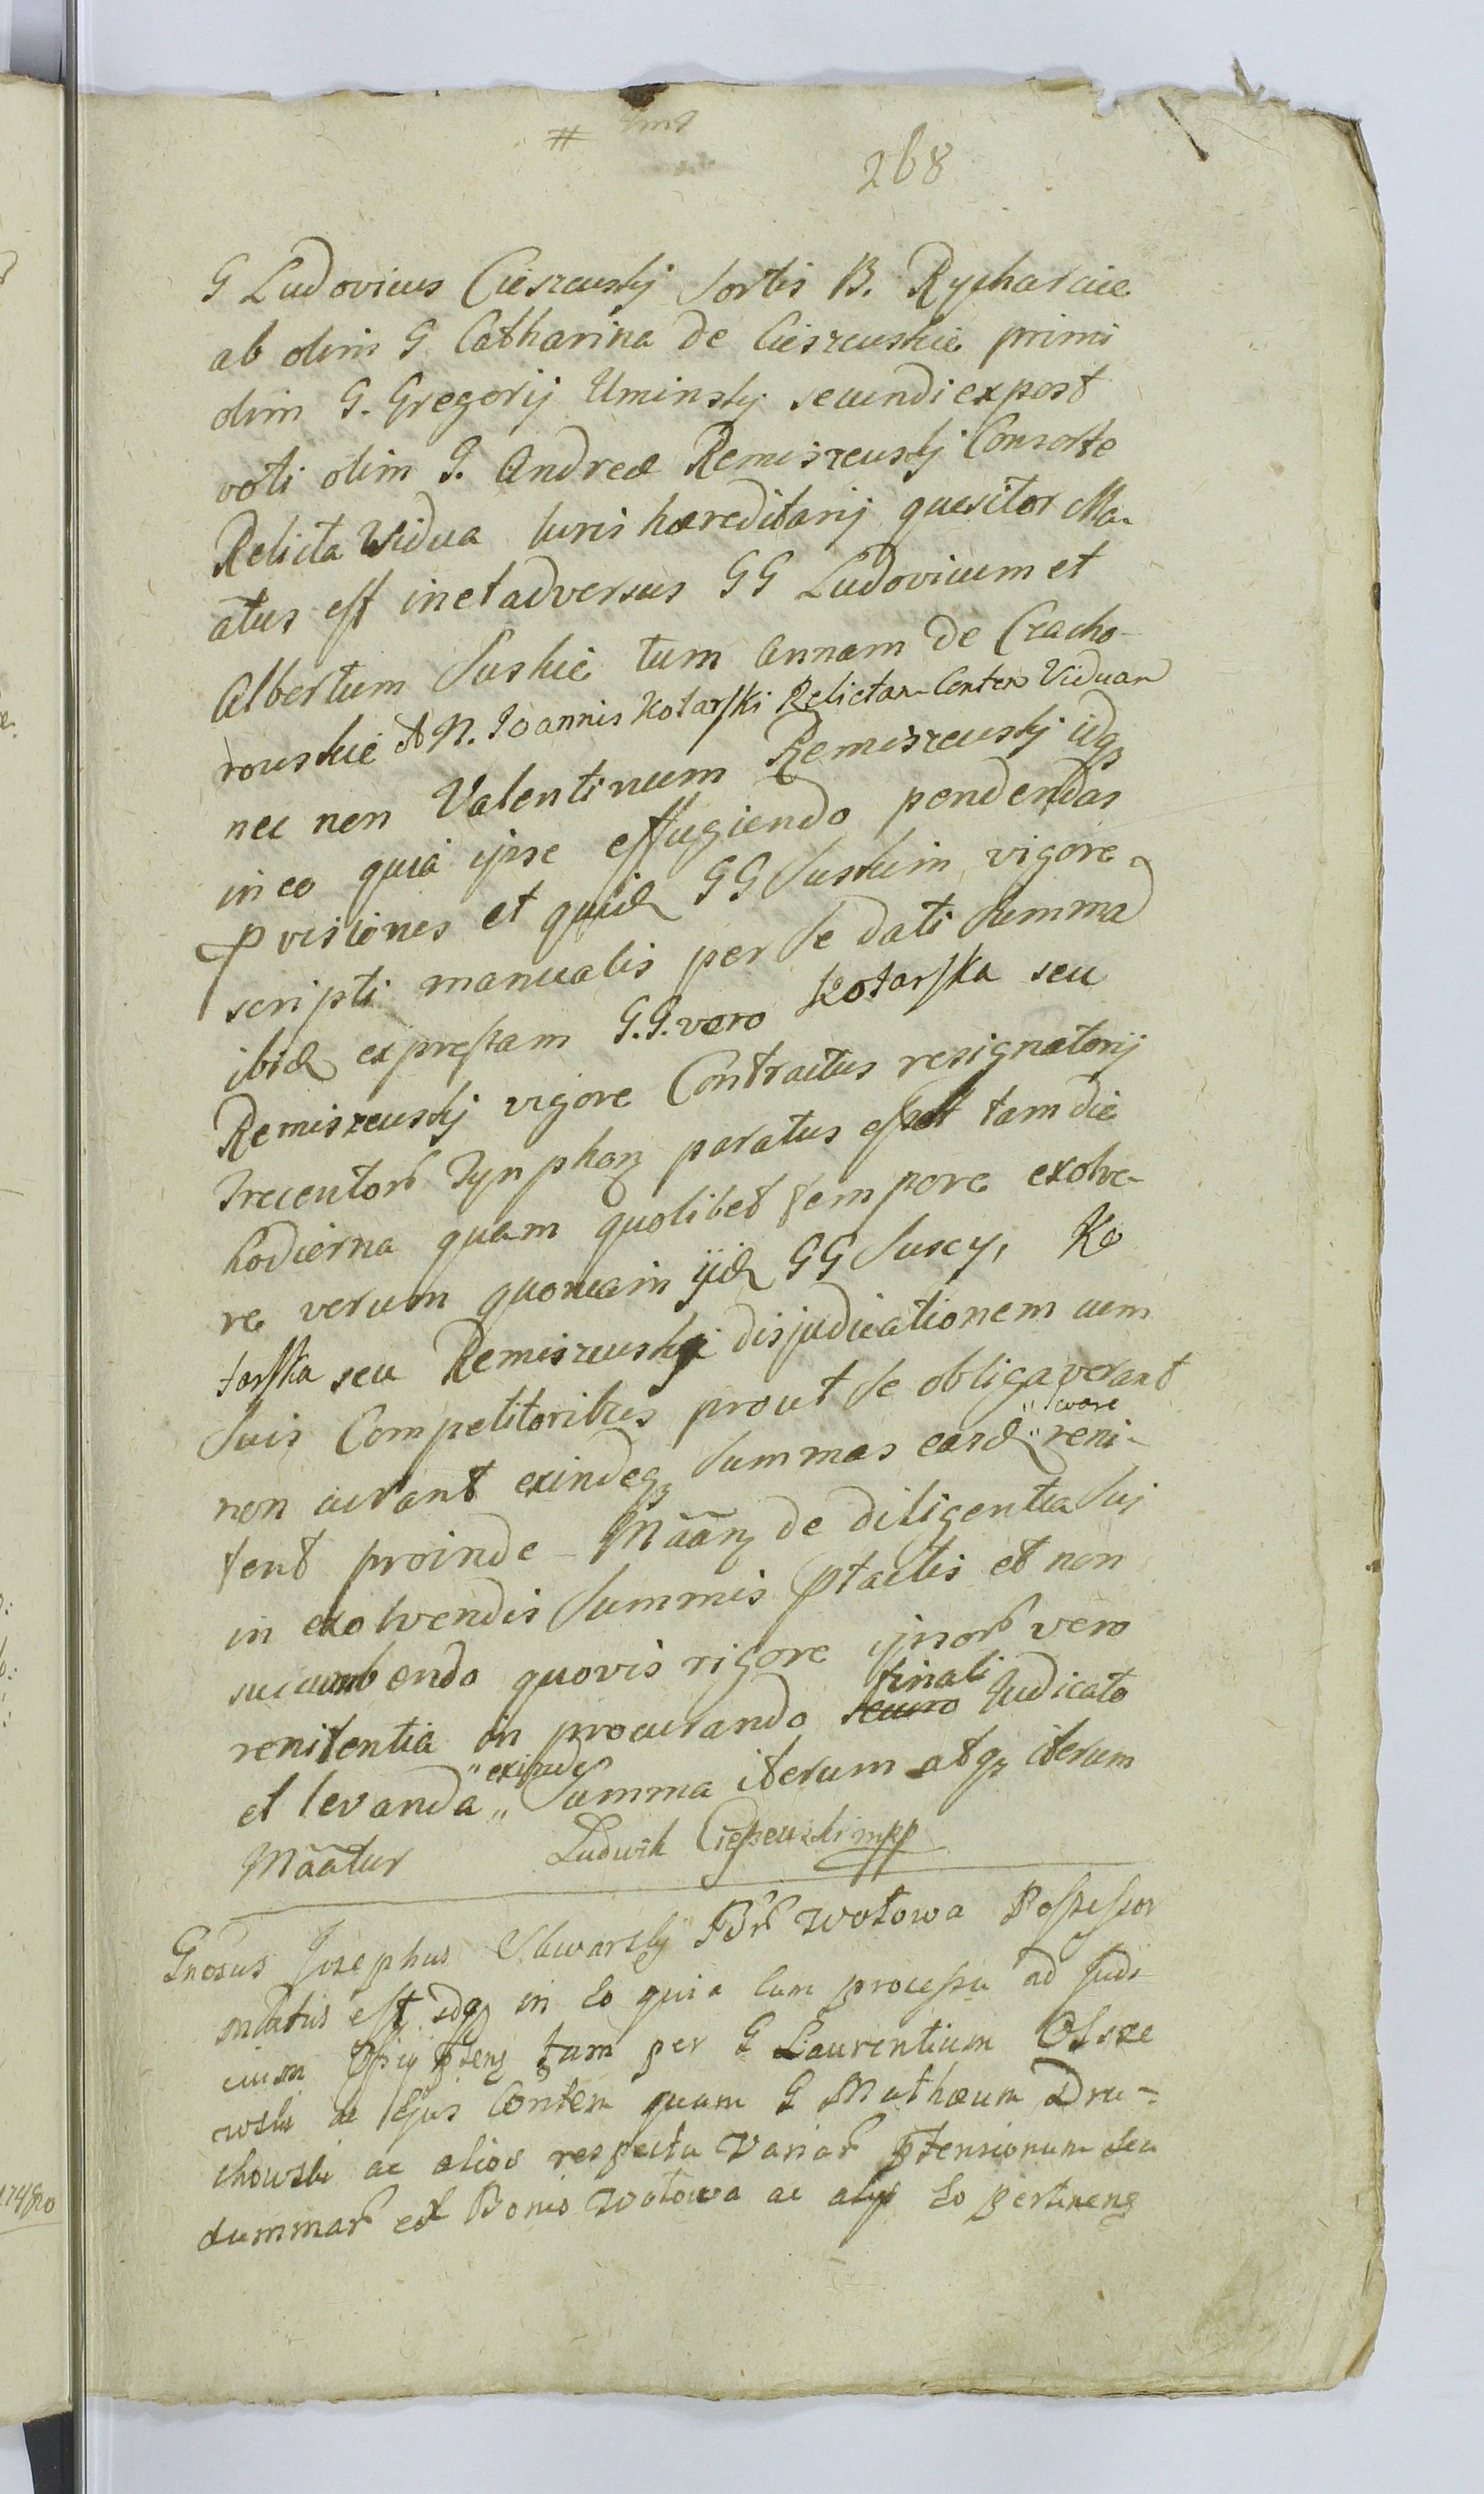 268
G Ludovicus Cieszewskij sortis B. Rycharcice
ab olim G. Catharina de Cieszewskie primi
olim G. Gregorij Uminskij secundi expost
voti olim G. Andreæ Remiszewskij Consorte
Relicta Vidua Iuris hæreditarij quæsitor Ma-
ãtus est in et adversus GG Ludovicum et
Albertum Suskie tum Annam de Czacho-
rowskie N. Ioannis Kotarski Relictam Contem Viduam
nec non Valentinum Remiszewskij idq3
in eo quia ipse effugiendo pendendas
pvisiones et quid GG Suskim vigore
scripti manualis per se dati Summa
ibid expressam G.G. vero Kotarska seu
Remiszewskij vigore Contractus resignatorij
Trecentor Tynphon paratus esset tam die
hodierna quam quolibet tempore exolve-
re verum quoniam ijd GG Suscy, Ko
tarska seu Remiszewskij disjudicationem cum
Suis Competitoribus prout se obligaverant
non curant exindeq3 Summas easd reni-
tent proinde Mãan3 de diligentia sui
in exolvendis Summis ptactis et non
succumbendo quovis rigore ipsor vero
renitentia in procurando finali Iudicato
et levanda "exinde" Summa iterum atq3 iterum
Mãatur Ludwik Cieszewski mpp
Gnosus Josephus Skwarskij Bor Wotowa Possessor
mãatus est idq3 in eo quia cum processu ad Judi
cium tam per G Laurentium Olsze
wski ac Ejus Contem quam G Mathæum Dru-
chowski ac alios respectu Variar ptensionum seu
summar ex Bonis Wotowa ac alys eo pertinen3